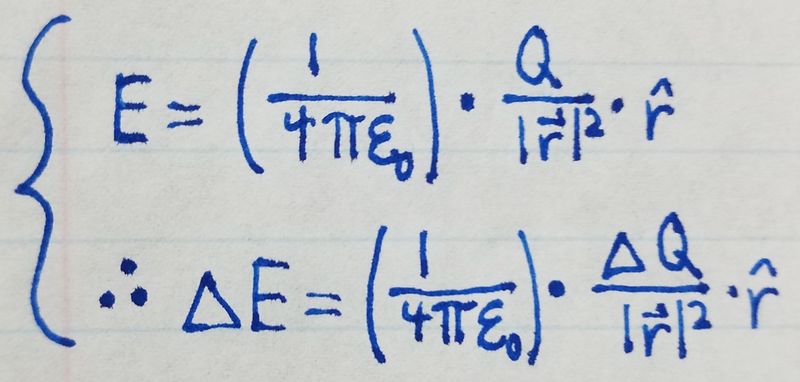 E = (1/4πε₀) · Q/|r⃗|² · r̂
∴ ΔE = (1/4πε₀) · ΔQ/|r⃗|² · r̂